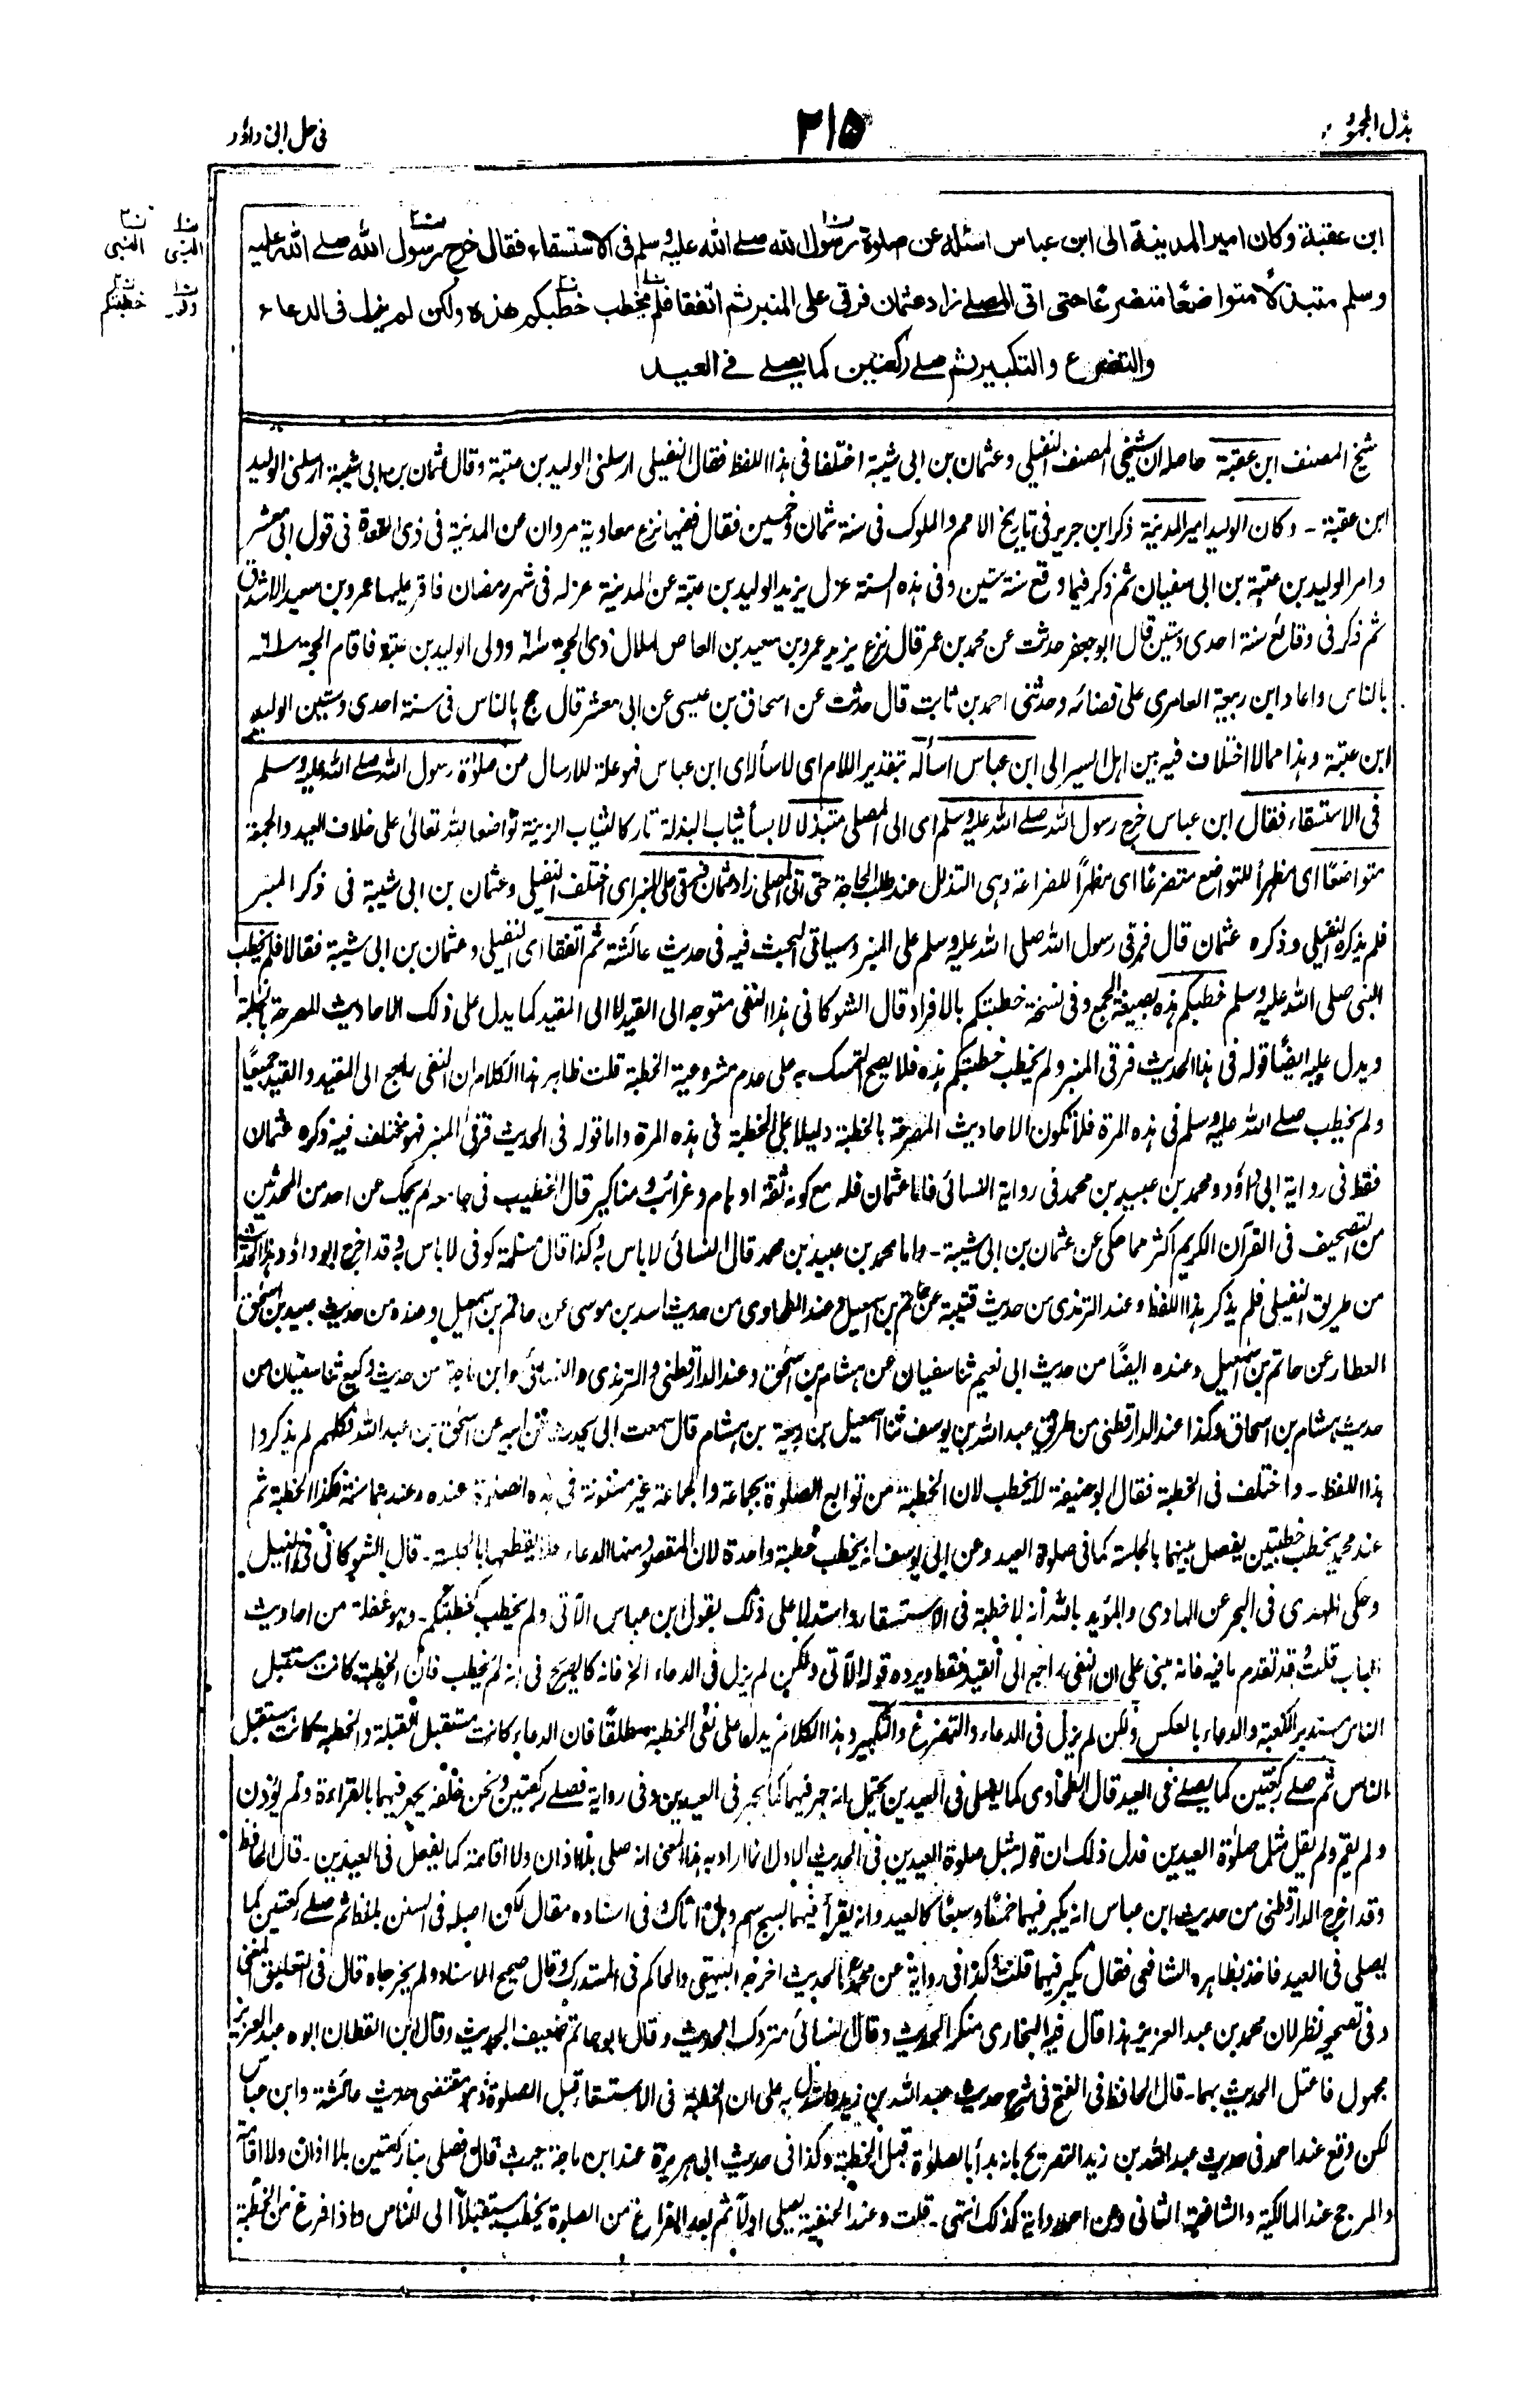 بذل المجهود
٢١٥
في حل ابي داؤد
ابن عقبة وكان امير المدينة الى ابن عباس اسئله عن صلوة رسول الله صلے الله عليه وسلم في الاستسقاء فقال خرج رسول الله صلے الله عليه
وسلم متبذلاً متواضعًا متضرعًا حتى اتى المصلے زاد عثمان فرقى على المنبر ثم اتفقا فلم يخطب خطبكم هذه ولكن لم يزل في الدعاء
والتضرع والتكبير ثم صلے ركعتين كما يصلے في العيد
ن١ النبي ن٢ النبي
ن٢ خطبتكم
شيخ المصنف ابن عقبة حاصله ان شيخي المصنف النفيلي وعثمان بن ابي شيبة اختلفا في هذا اللفظ فقال النفيلي ارسلني الوليد بن عتبة وقال عثمان بن ابي شيبة ارسلني الوليد
ابن عقبة - وكان الوليد امير المدينة ذكر ابن جرير في تاريخ الامم والملوك في سنة ثمان وخمسين فقال ففيها نزع معاوية مروان عن المدينة في ذي القعدة في قول ابي معشر
وامر الوليد بن عتبة بن ابي سفيان ثم ذكر فيما وقع سنة ستين وفي هذه السنة عزل يزيد الوليد بن عتبة عن المدينة عزله في شهر رمضان فاقر عليها عمرو بن سعيد الاشدق
ثم ذكر في وقائع سنة احدى وستين قال ابو جعفر حدثت عن محمد بن عمر قال نزع يزيد عمرو بن سعيد بن العاص لهلال ذي الحجة سنة ٦١ وولى الوليد بن عتبة فاقام الحجة سنة ٦١
بالناس واعاد ابن ربيعة العامري على قضائه وحدثني احمد بن ثابت قال حدثت عن اسحاق بن عيسى عن ابي معشر قال حج بالناس في سنة احدى وستين الوليد
ابن عتبة وهذا مما لا اختلاف فيه بين اهل السير الى ابن عباس اسأله بتقدير اللام اى لاسأله اى ابن عباس فهو علة للارسال عن صلوة رسول الله صلے الله عليه وسلم
في الاستسقاء فقال ابن عباس خرج رسول الله صلے الله عليه وسلم اى الى المصلى متبذلا لابسا ثياب البذلة تاركا لثياب الزينة تواضعا لله تعالى على خلاف العيد والجمعة
متواضعًا اى مظهراً للتواضع متضرعًا اى مظهراً للضراعة وهى التذلل عند طلب الحاجة حتى اتى المصلى زاد عثمان فرقى على المنبر اى اختلف النفيلي وعثمان بن ابي شيبة في ذكر المنبر
فلم يذكره النفيلي وذكره عثمان قال فرقى رسول الله صلى الله عليه وسلم على المنبر وسياتي البحث فيه في حديث عائشة ثم اتفقا اى النفيلي وعثمان بن ابي شيبة فقالا فلم يخطب
النبي صلى الله عليه وسلم خطبكم هذه بصيغة الجمع وفي نسخة خطبتكم بالافراد قال الشوكاني هذا النفي متوجه الى القيد لا الى المقيد كما يدل على ذلك الاحاديث المصرحة بالخطبة
ويدل عليه ايضًا قوله في هذا الحديث فرقى المنبر ولم يخطب خطبتكم هذه فلا يصح التمسك به على عدم مشروعية الخطبة قلت ظاهر هذا الكلام ان النفي راجع الى المقيد والقيد جميعًا
ولم يخطب صلے الله عليه وسلم في هذه المرة فلا تكون الاحاديث المصرحة بالخطبة دليلا على الخطبة في هذه المرة واما قوله في الحديث فرقى المنبر فهو مختلف فيه ذكره عثمان
فقط في رواية ابي داؤد ومحمد بن عبيد بن محمد في رواية النسائي فاما عثمان فله مع كونه ثقة اوهام وغرائب ومناكير قال الخطيب في جامعه لم يحك عن احد من المحدثين
من التصحيف في القرآن الكريم اكثر مما حكى عن عثمان بن ابي شيبة - واما محمد بن عبيد بن محمد قال النسائي لا باس به وكذا قال مسلمة كوفي لا باس به وقد اخرج ابو داؤد هذا الحديث
من طريق النفيلي فلم يذكر هذا اللفظ وعند الترمذي من حديث قتيبة عن حاتم بن اسمعيل وعند الطحاوي من حديث اسد بن موسى عن حاتم بن اسمعيل وعنده من حديث عبيد بن اسحق
العطار عن حاتم بن اسمعيل وعنده ايضًا من حديث ابي نعيم ثنا سفيان عن هشام بن اسحق وعند الدارقطني والترمذي والنسائي وابن ماجة من حديث وكيع ثنا سفيان من
حديث هشام بن اسحاق وكذا عند الدارقطني من طريق عبد الله بن يوسف ثنا اسمعيل بن ربيعة بن هشام قال سمعت ابي يحدث عن ابيه عن اسحق بن عبد الله فكلهم لم يذكروا
هذا اللفظ - واختلف في الخطبة فقال ابو حنيفة لا يخطب لان الخطبة من توابع الصلوة بجماعة والجماعة غير مسنونة في هذه الصلوة عنده وعندهما سنة فكذا الخطبة ثم
عند محمد يخطب خطبتين يفصل بينهما بالجلسة كما في صلوة العيد وعن ابي يوسف انه يخطب خطبة واحدة لان المقصود منها الدعاء فلا يقطعها بالجلسة - قال الشوكاني في النيل
وحكى المهدي في البحر عن الهادي والمؤيد بالله أنه لا خطبة في الاستسقاء واستدلا على ذلك بقول ابن عباس الآتي ولم يخطب كخطبتكم - وهو غفلة من احاديث
الباب قلت قد تقدم ما فيه فانه مبنى على ان النفي راجع الى القيد فقط ويرده قوله الآتي ولكن لم يزل في الدعاء الخ فانه كالصريح في انه لم يخطب فان الخطبة كانت مستقبل
الناس مستدبر الكعبة والدعاء بالعكس ولكن لم يزل في الدعاء والتضرع والتكبير وهذا الكلام يدل على نفي الخطبة مطلقًا فان الدعاء كانت مستقبل القبلة والخطبة كانت مستقبل
الناس ثم صلے ركعتين كما يصلے في العيد قال الطحاوي كما يصلى في العيدين يحتمل انه جهر فيهما كما يجهر في العيدين وفي رواية فصلے ركعتين ونحن خلفه يجهر فيهما بالقراءة ولم يؤذن
ولم يقم ولم يقل مثل صلوة العيدين فدل ذلك ان قوله مثل صلوة العيدين في الحديث الاول انما اراد به هذا المعنى انه صلى بلا اذان ولا اقامة كما يفعل في العيدين - قال الحافظ
وقد اخرج الدارقطني من حديث ابن عباس انه يكبر فيهما خمسًا وسبعًا كالعيد وانه يقرأ فيهما بسبح اسم وهل اتاك وفي اسناده مقال لكن اصله في السنن بلفظ ثم صلے ركعتين كما
يصلى في العيد فاخذ بظاهره الشافعي فقال يكبر فيهما قلت كذا في رواية عن محمد والحديث اخرجه البيهقي والحاكم في المستدرك وقال صحيح الاسناد ولم يخرجاه قال في التعليق المغني
وفي تصحيحه نظر لان محمد بن عبد العزيز هذا قال فيه البخاري منكر الحديث وقال النسائي متروك الحديث وقال ابو حاتم ضعيف الحديث وقال ابن القطان ابوه عبد العزيز
مجهول فاعتل الحديث بهما - قال الحافظ في الفتح في شرح حديث عبد الله بن زيد واستدل به على ان الخطبة في الاستسقاء قبل الصلوة وهو مقتضى حديث عائشة وابن عباس
لكن وقع عند احمد في حديث عبد الله بن زيد التصريح بانه بدأ بالصلوة قبل الخطبة وكذا في حديث ابي هريرة عند ابن ماجة حيث قال فصلى بنا ركعتين بلا اذان ولا اقامة
والمرجح عند المالكية والشافعية الثاني وعن احمد رواية كذلك انتهى - قلت وعند الحنفية يصلى اولًا ثم بعد الفراغ من الصلوة يخطب مستقبلًا الى الناس واذا فرغ من الخطبة